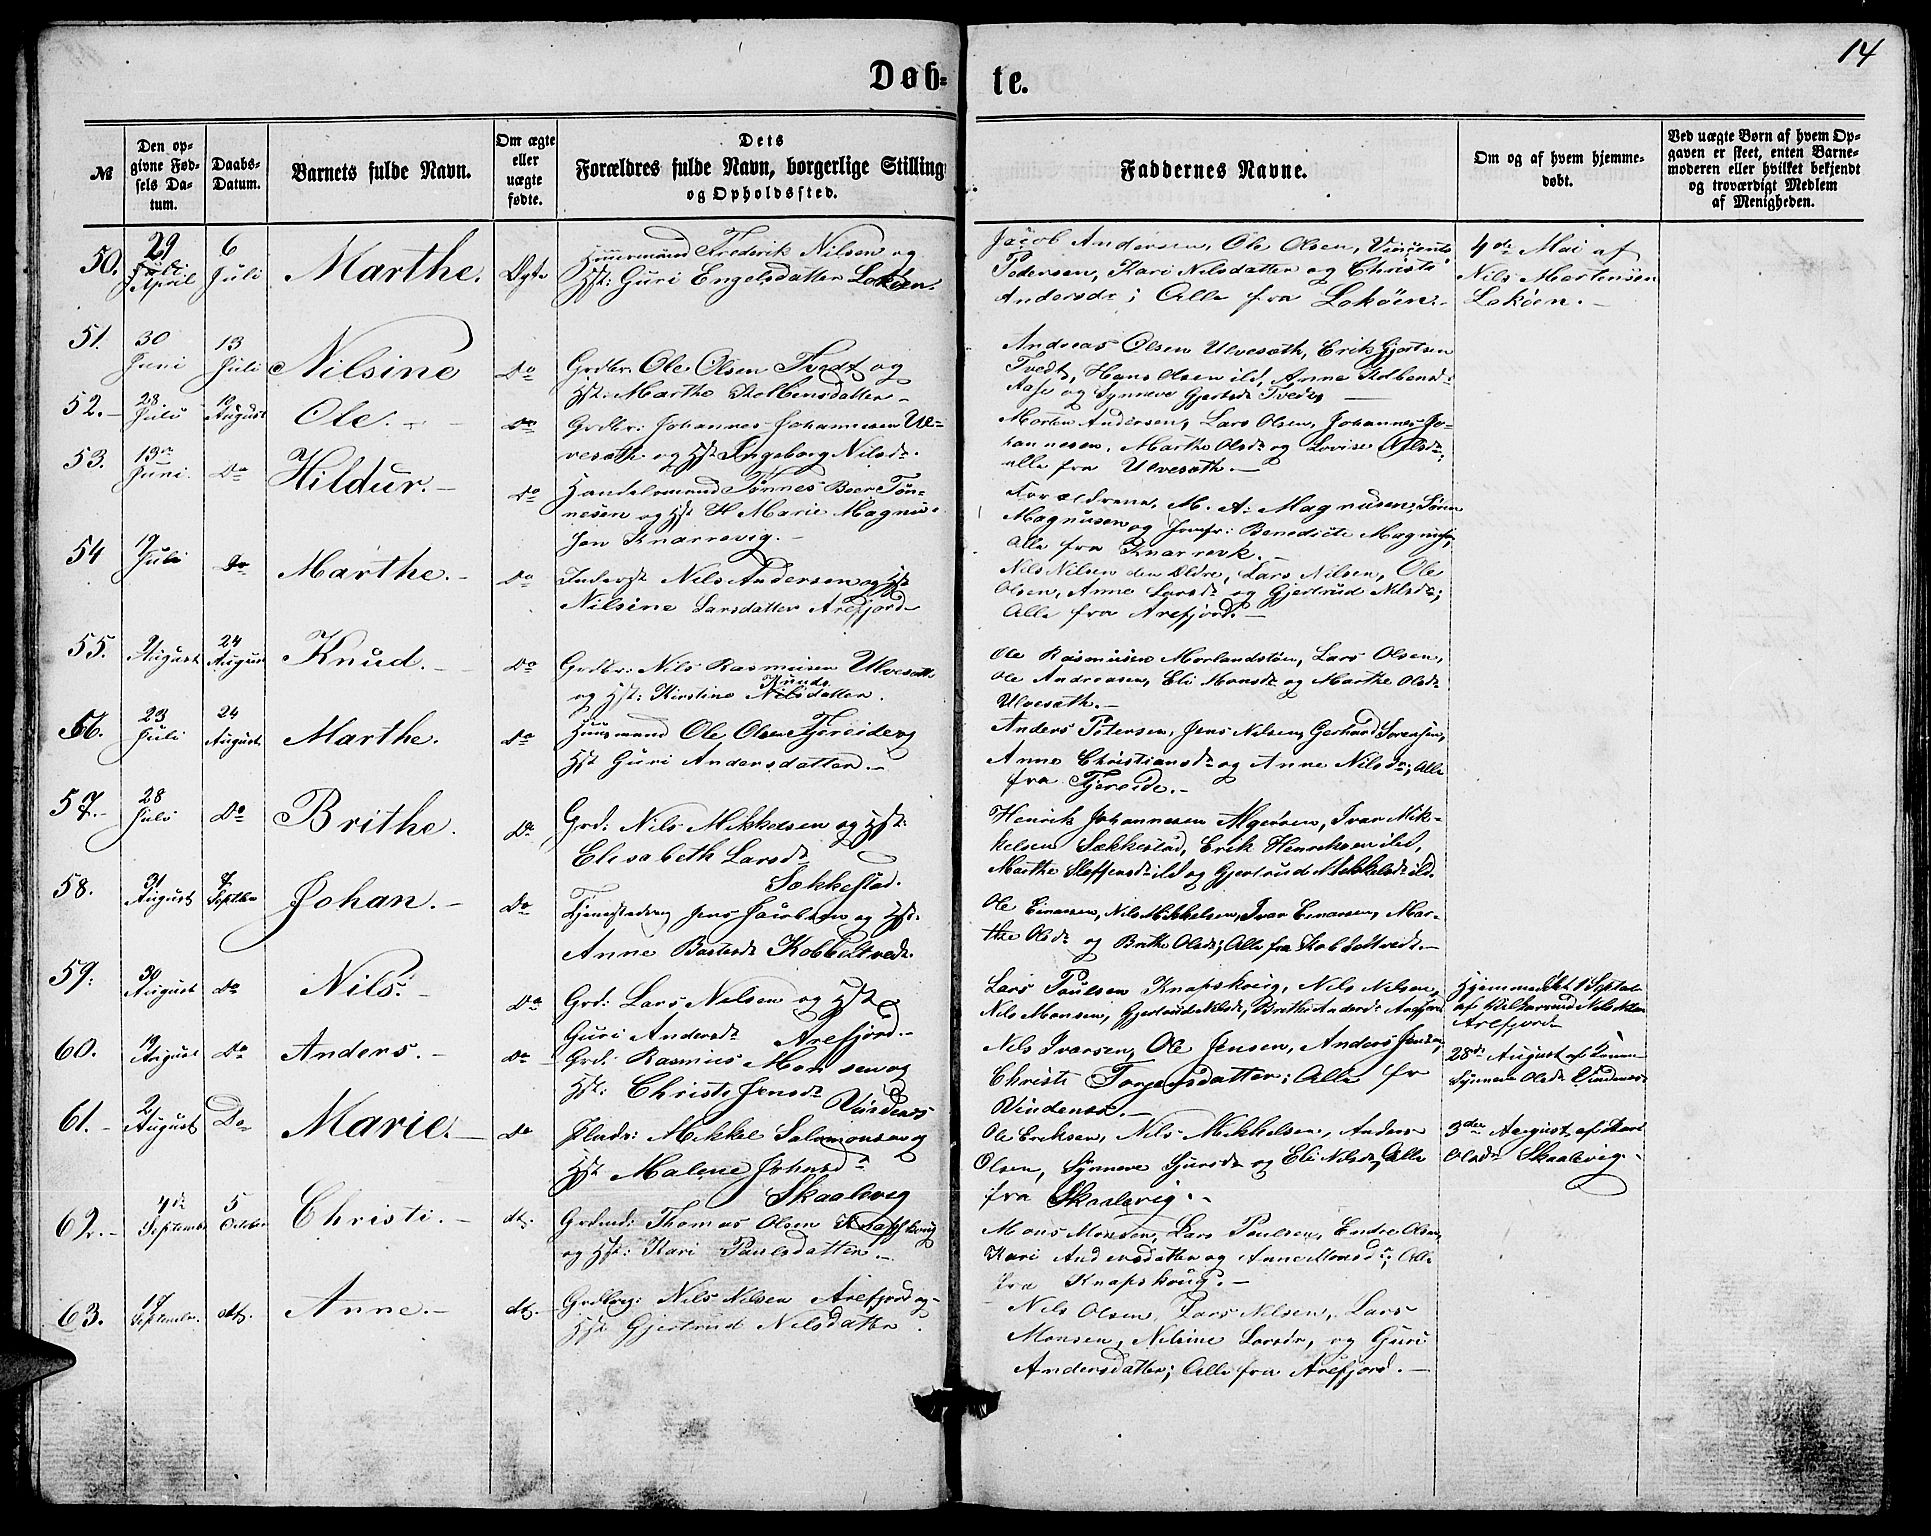 14
Døb- te.
№
Den op-
givne Fød-
sels Da-
tum.
Daabs-
Datum.
Barnets fulde Navn.
Om ægte
eller
uægte
fødte.
Dets
Forældres fulde Navn, borgerlige Stilling
og Opholdssted.
Faddernes Navne.
Om og af hvem hjemme-
døbt.
Ved uægte Børn af hvem Op-
gaven er skeet, enten Barne-
moderen eller hvilket bekjendt
og troværdigt Medlem
af Menigheden.
50. 29 April 6 Juli Marthe. Ægte
Huusmand Frederik Nilsen og
Hst: Guri Engelsdatter Lokøen.
Jacob Andersen, Ole Olsen, Vincents
Pedersen, Kari Nilsdatter og Christi
Andersdr; Alle fra Lokøen.
4de Mai af
Nils Mortensen
Lokøen.
51. 30 Juni 13 Juli Nilsine Do
Grdbr. Ole Olsen Tvedt og
Hst: Marthe Kolbensdatter
Andreas Olsen Ulvesæth, Erik Gjertsen
Tvedt, Hans Olsen ibd, Anne Kolbensd:
Aase og Synneve Gjertsdr Tvedt
52. 28 Juli 10 August Ole. Do
Grdbr: Johannes Johannesen Ul-
vesæth og Hst Ingeborg Nilsdr.
Morten Andersen, Lars Olsen, Johannes Jo-
hannesen, Marthe Olsdr og Lovise Nilsdr;
alle fra Ulvesæth.
53. 13de Juni. Do Hildur. Do
Handelsmand Tønnes Beer Tøn-
nesen og Hst H Marie Magnus-
sen Knarrevig.
Forældrene, M. A. Magnusen, Søren
Magnusen og Jomfr: Benedicte Magnusen,
Alle fra Knarrevik.
54 19 Juli Do Marthe. Do
Inderst Nils Andersen og Hst
Nilsine Larsdatter Arefjord
Nils Nilsen den Ældre, Lars Nilsen, Ole
Olsen, Anne Larsdr og Gjertrud Nilsdr;
Alle fra Arefjord.
55. 9 August 24 August Knud. Do
Grdbr: Nils Rasmusen Ulvesæth
og Hst: Kirstine Knuds Nilsdatter.
Ole Rasmusen Morlandstøen, Lars Olsen,
Ole Andreasen, Eli Monsdr og Marthe Olsdr
Ulvesæth.
56. 23 Juli 24 August Marthe. Do
Huusmand Ole Olsen Fjereide og
Hst Guri Andersdatter.
Anders Petersen, Jens Nilsen, Gerhard Sørensen,
Anne Christiansdr og Anne Nilsdr; Alle
fra Fjereide.
57. 28 Juli Do Brithe. Do
Grd: Nils Mikkelsen og Hst:
Elisabeth Larsdr
Sækkestad.
Henrik Johannesen Algerøen, Ivar Mik-
kelsen Sækkestad, Erik Henriksen ibd,
Marthe Steffensdr ibd og Gjertrud Mikkelsdr ibd.
58. 31 August 7 Septbr Johan. Do
Tjenestedreng Jens Jacobsen og Hst:
Anne Baardsdr Kobbeltvedt.
Ole Einarsen, Nils Mikkelsen, Ivar Einarsen, Mar-
the Olsdr og Brithe Olsdr; Alle fra Kobbeltvedt.
59. 30 August Do Nils. Do
Grd: Lars Nilsen og Hst
Guri Andersdr Arefjord.
Lars Paulsen Knapskoug, Nils Nilsen,
Nils Monsen, Gjertrud Nilsdr, Brithe Andersdr Arefjord
Hjemmedøbt 1 Septbr
af Nils Nilsen
Arefjord
60. 19 August Do Anders. Do
Grd: Rasmus Monsen og
Hst: Christi Jensdr Vindenes
Nils Ivarsen, Ole Jensen, Anders Jensen,
Christi Torgersdatter; Alle fr
Vindenes.
28de August af
Synneve Olsdr Vindenes
61. 2 August Do Marie. Do
Pladr: Mikkel Salomonsen og
Hst Malene Johnsdr
Skaalevig
Ole Eriksen, Nils Mikkelsen, Anders
Olsen, Synneve Sjursdr og Eli Nilsdr; Alle
fra Skaalevig.
3die August af Kari
Olsdr Skaalevig.
62. 4de September 5 October Christi. dt.
Grdmd: Thomas Olsen Knapskoug
og Hst: Kari Paulsdatter.
Mons Monsen, Lars Paulsen, Endre Olsen,
Kari Andersdatter og Anne Monsdr; Alle
fra Knapskoug.
63. 17 September dt. Anne. dt.
Grdbrg: Nils Nilsen Arefjord og
Hst Gjertrud Nilsdatter.
Nils Olsen, Lars Nilsen, Lars
Monsen, Nilsine Larsdr, og Guri
Andersdatter; Alle fra Arefjord.